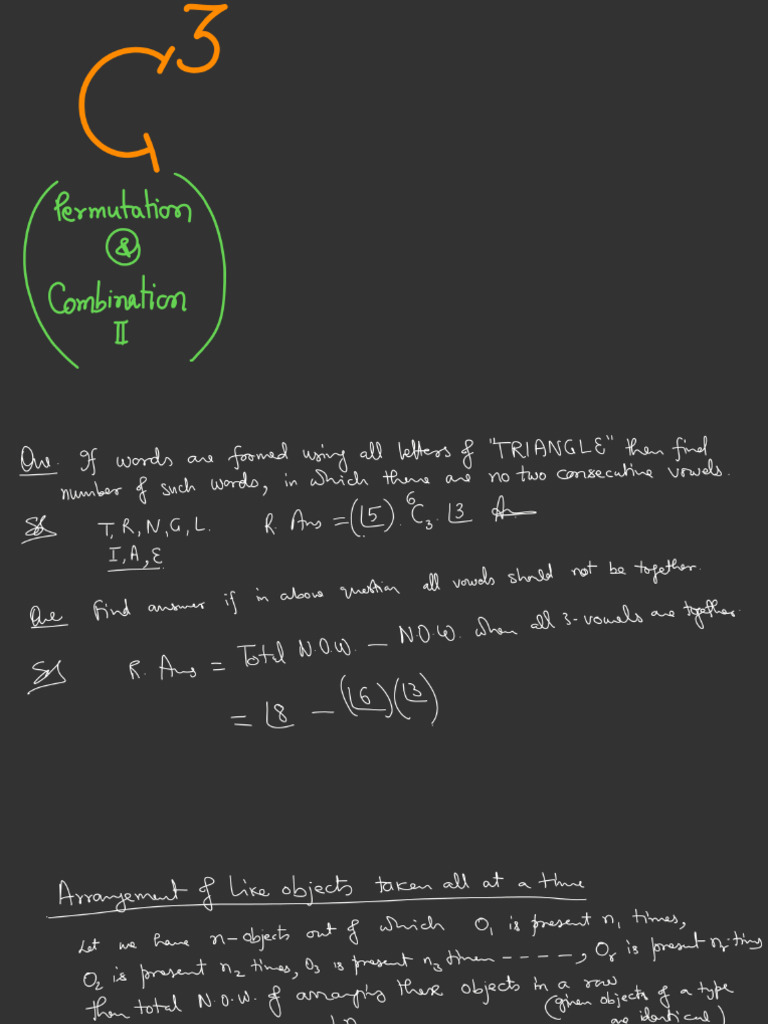 3
Permutation
&
Combination
II
Que. If words are formed using all letters of "TRIANGLE" then find
number of such words, in which there are no two consecutive vowels.
Sol T, R, N, G, L. R. Ans = (⌊5) . ⁶C₃ . ⌊3 Ans
I, A, E
Que Find answer if in above question all vowels should not be together.
Sol R. Ans = Total N.O.W. — N.O.W. when all 3-vowels are together.
= ⌊8 — (⌊6)(⌊3)
Arrangement of Like objects taken all at a time
Let we have n-objects out of which O₁ is present n₁ times,
O₂ is present n₂ times, O₃ is present n₃ times - - - - -, Oᵣ is present nᵣ-times
then total N.O.W. of arranging these objects in a raw
(given objects of a type
are identical)
⌊n